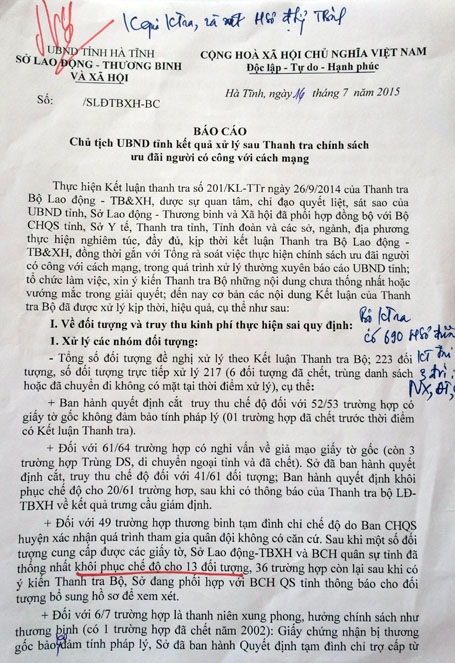 UBND TỈNH HÀ TĨNH
SỞ LAO ĐỘNG - THƯƠNG BINH
VÀ XÃ HỘI
CỘNG HOÀ XÃ HỘI CHỦ NGHĨA VIỆT NAM
Độc lập - Tự do - Hạnh phúc
Số: /SLĐTBXH-BC
Hà Tĩnh, ngày 16 tháng 7 năm 2015
BÁO CÁO
Chủ tịch UBND tỉnh kết quả xử lý sau Thanh tra chính sách
ưu đãi người có công với cách mạng
Thực hiện Kết luận thanh tra số 201/KL-TTr ngày 26/9/2014 của Thanh tra
Bộ Lao động - TB&XH, được sự quan tâm, chỉ đạo quyết liệt, sát sao của
UBND tỉnh, Sở Lao động - Thương binh và Xã hội đã phối hợp đồng bộ với Bộ
CHQS tỉnh, Sở Y tế, Thanh tra tỉnh, Tỉnh đoàn và các sở, ngành, địa phương
thực hiện nghiêm túc, đầy đủ, kịp thời kết luận Thanh tra Bộ Lao động -
TB&XH, đồng thời gắn với Tổng rà soát việc thực hiện chính sách ưu đãi người
có công với cách mạng, trong quá trình xử lý thường xuyên báo cáo UBND tỉnh;
tổ chức làm việc, xin ý kiến Thanh tra Bộ những nội dung chưa thống nhất hoặc
vướng mắc trong giải quyết; đến nay cơ bản các nội dung Kết luận của Thanh
tra Bộ đã được xử lý kịp thời, hiệu quả, cụ thể như sau:
I. Về đối tượng và truy thu kinh phí thực hiện sai quy định:
1. Xử lý các nhóm đối tượng:
- Tổng số đối tượng đề nghị xử lý theo Kết luận Thanh tra Bộ; 223 đối
tượng, số đối tượng trực tiếp xử lý 217 (6 đối tượng đã chết, trùng danh sách
hoặc đã chuyển đi không có mặt tại thời điểm xử lý), cụ thể:
+ Ban hành quyết định cắt truy thu chế độ đối với 52/53 trường hợp có
giấy tờ gốc không đảm bảo tính pháp lý (01 trường hợp đã chết trước thời điểm
có Kết luận Thanh tra).
+ Đối với 61/64 trường hợp có nghi vấn về giả mạo giấy tờ gốc (còn 3
trường hợp Trùng DS, di chuyển ngoại tỉnh và đã chết). Sở đã ban hành quyết
định cắt, truy thu chế độ đối với 41/61 đối tượng; Ban hành quyết định khôi
phục chế độ cho 20/61 trường hợp, sau khi có thông báo của Thanh tra bộ LĐ-
TBXH về kết quả trưng cầu giám định.
+ Đối với 49 trường hợp thương binh tạm đình chỉ chế độ do Ban CHQS
huyện xác nhận quá trình tham gia quân đội không có căn cứ. Sau khi một số đối
tượng cung cấp được các giấy tờ, Sở Lao động-TBXH và BCH quân sự tỉnh đã
thống nhất khôi phục chế độ cho 13 đối tượng, 36 trường hợp còn lại sau khi có
ý kiến Thanh tra Bộ, Sở đang phối hợp với BCH QS tỉnh thông báo cho đối
tượng bổ sung hồ sơ để xem xét.
+ Đối với 6/7 trường hợp là thanh niên xung phong, hưởng chính sách như
thương binh (có 1 trường hợp đã chết năm 2002): Giấy chứng nhận bị thương
gốc bảo đảm tính pháp lý, Sở đã ban hành Quyết định tạm đình chỉ trợ cấp từ